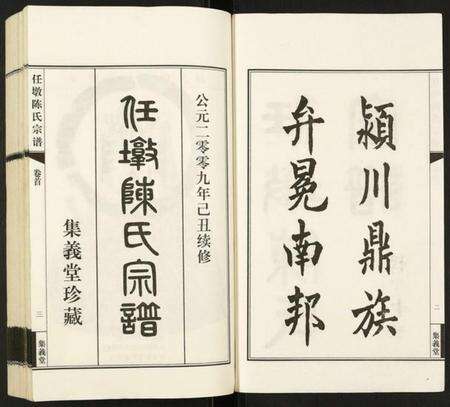 颍川鼎族
弁冕南邦
二
集義堂
公元二零零九年己丑续修
任墩陳氏宗譜
集義堂珍藏
任墩陈氏宗谱
卷首
三
集義堂